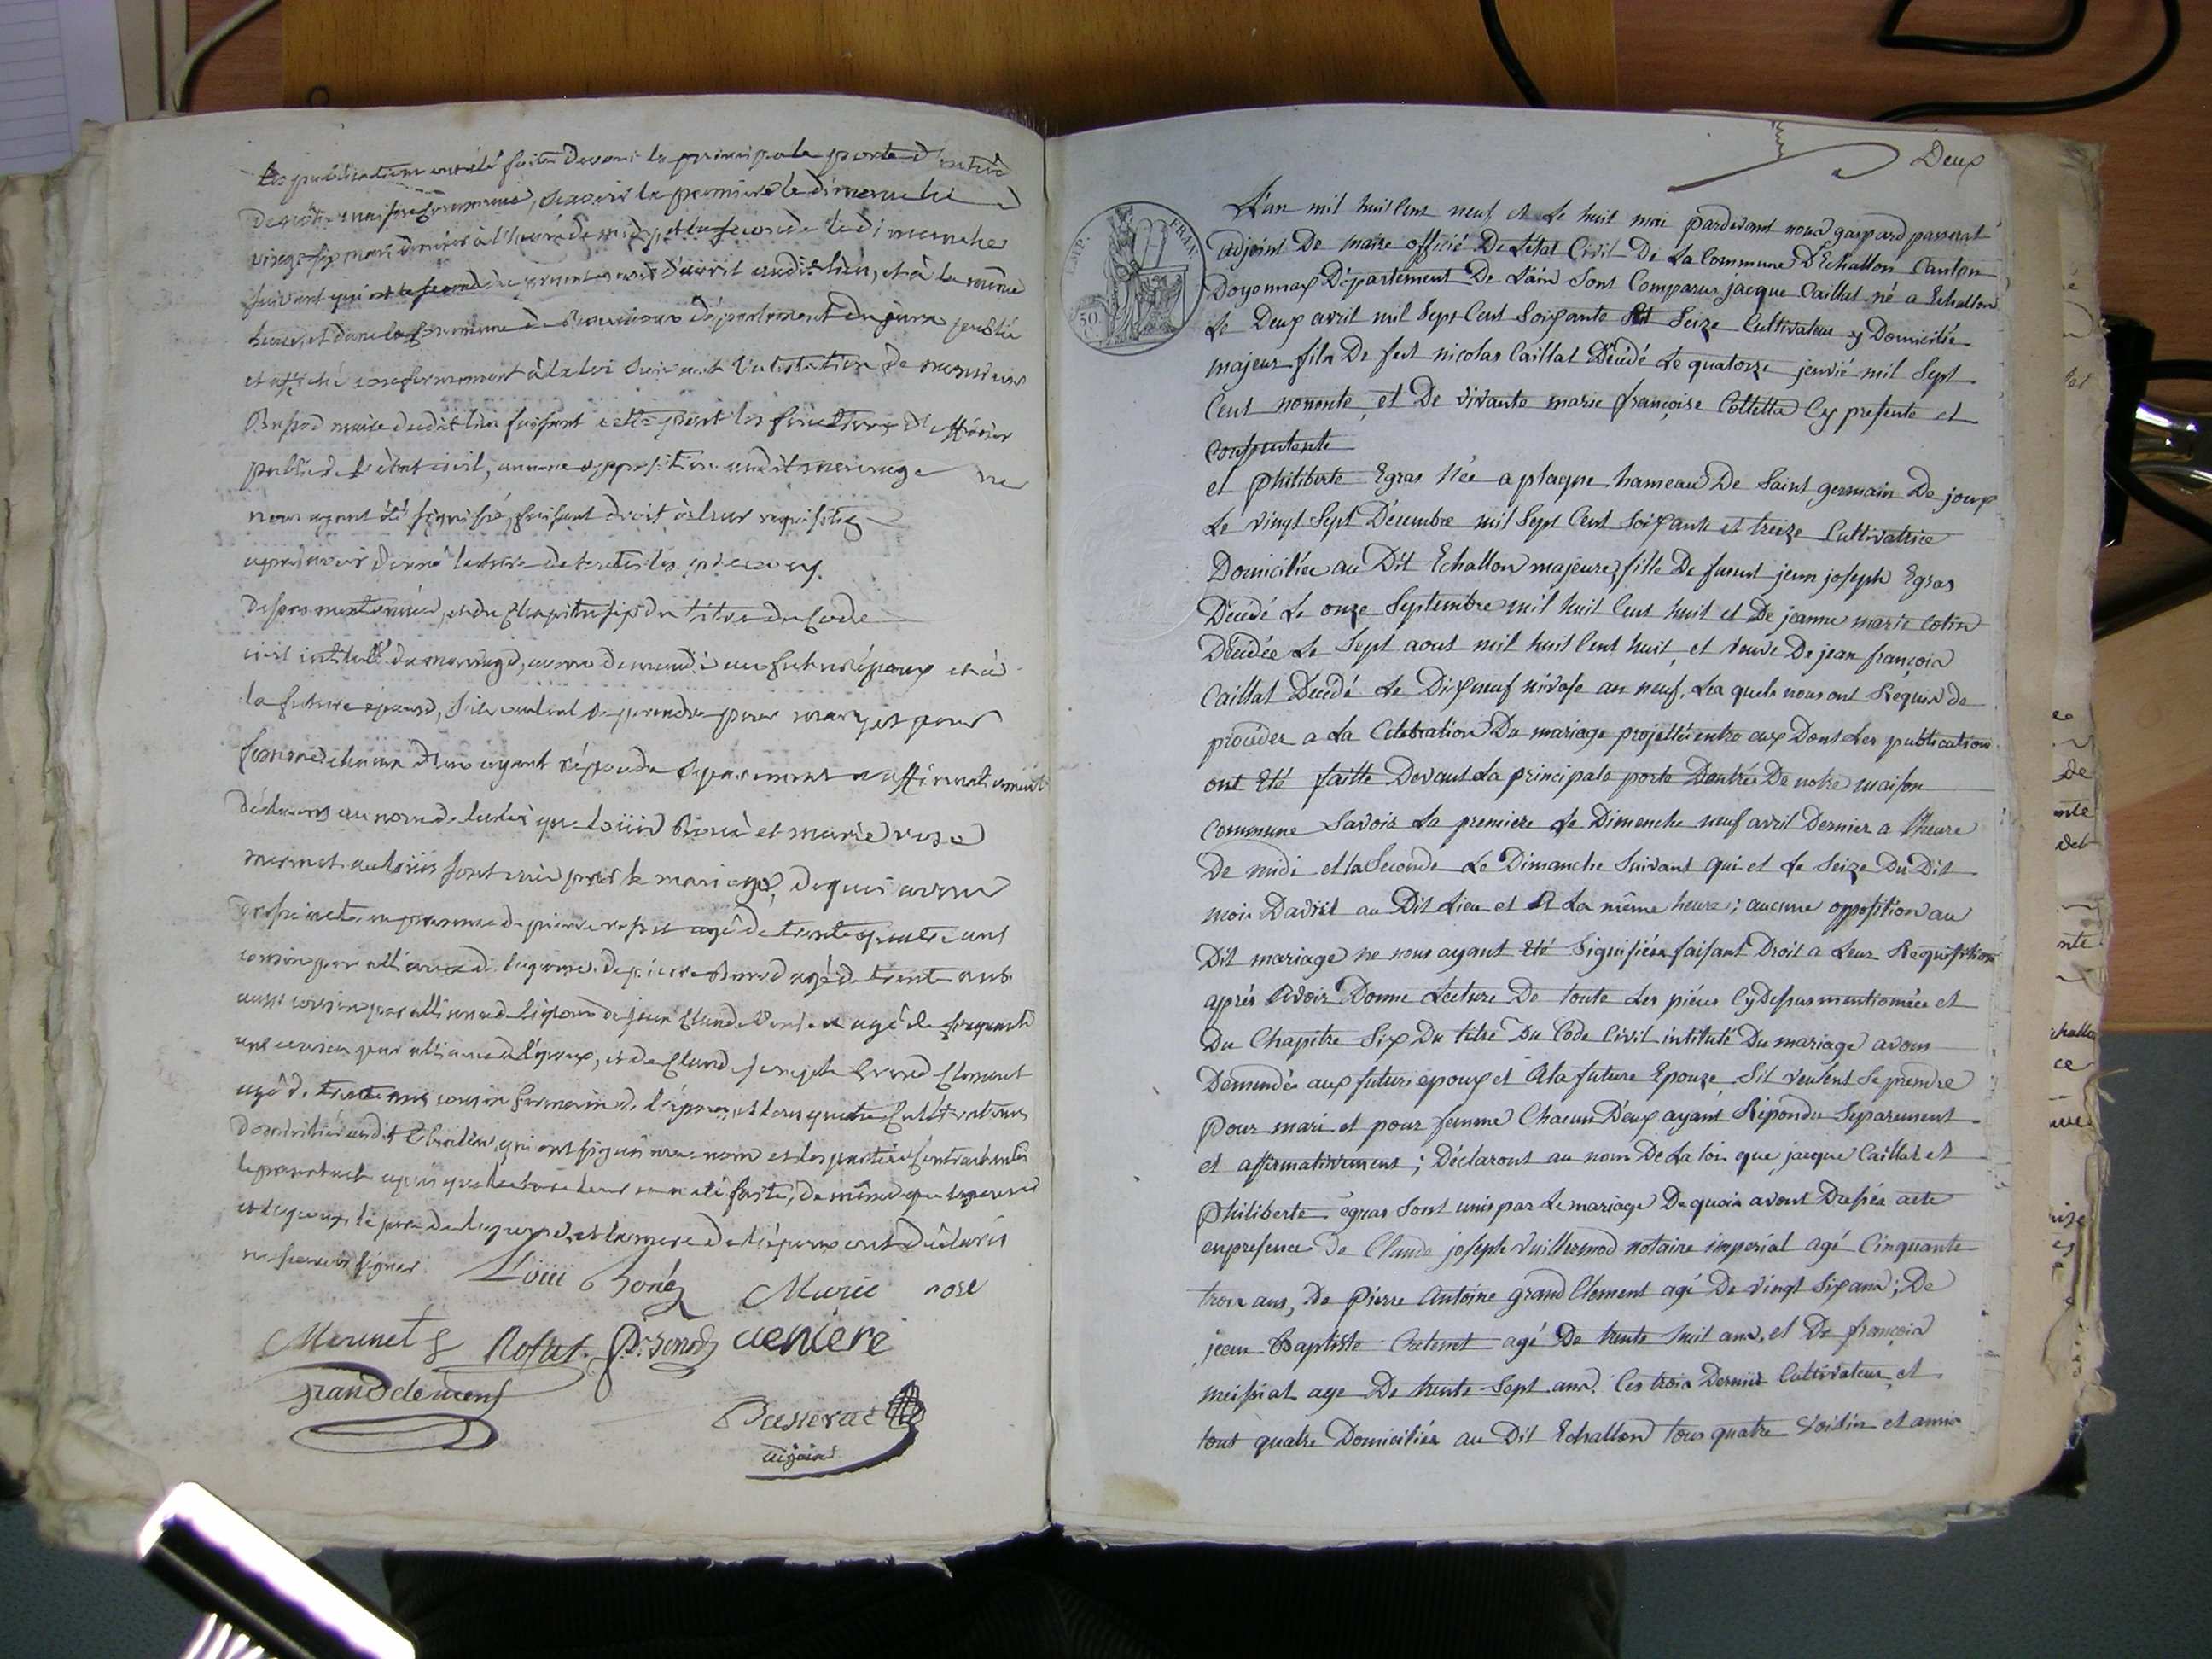 Les publications ont été faites devant la principale porte d'entrée
de notre maison commune, savoir la premiere le dimanche
vingt six mars dernier à l'heure de midy et la seconde le dimanche
suivant qui est le second du present mois d'avril audit lieu, et à la même
heure, et dans la commune de département du jura publié
et affiché conformément à la loi suivant l'attestation de monsieur
maire dudit lieu faisant les fonctions d'officier
public de l'état civil, aucune opposition audit mariage ne
nous ayant été signifié, faisant droit à leur requisition
apres avoir donné lecture de toutes les pieces cy
dessus mentionnées, et du Chapitre six du titre du Code
civil intitulé du mariage, avons demandé au futur époux et à
la future épouse, s'ils veulent se prendre pour mary et pour
femme chacun d'eux ayant répondu séparément et affirmativement
déclarons au nom de la loi que Loüis et marie rose
mermet sont unis par le mariage, de quoi avons
dressé acte en presence de pierre rostet agé de trente quatre ans
cousin par alliance de l'epouse de pierre agé de trente ans
aussi cousin par alliance de l'epouse de jean Claude agé de cinquante
ans cousin par alliance de l'époux, et de Claude joseph Grand Clement
agé de trente ans cousin germain de l'épouse, et tous quatre Cultivateurs
domiciliés audit Echallon, qui ont signé avec nous et les parties Contractantes
le present acte apres que lecture leur en a été faite, de même que
le pere de l'epouse, et la mere de l'époux ont déclarés
ne savoir signer. Loüi Marie rose
Mermet Rostet. veniere
grandclement
Passerat
adjoint
Deux
IMP. FRAN.
50 C
L'an mil huit Cent neuf et Le huit mai pardevant nous gaspard passerat
adjoint De maire officié De L'état Civil De La Commune D'Echallon Canton
Doyonnax Département De L'ain Sont Comparus jacque Caillat né a Echallon
Le Deux avril mil Sept Cent Soixante Seize Cultivateur y Domicilié
majeur fils De feu nicolas Caillat Décédé Le quatorze jenvié mil Sept
Cent nonente et De vivante marie françoise Colletta Cy presente et
Consentente
et philiberte Egras Née a plagne hameau De Saint germain De joux
Le vingt Sept Décembre mil Sept Cent Soixante et treize Cultivatrice
Domiciliée au Dit Echallon majeure, fille De jean joseph Egras
Décedé Le onze Septembre mil huit Cent huit et De jeanne marie Cotin
Décédée Le Sept aout mil huit Cent huit, et veuve De jean françois
Caillat Décédé Le Dixneuf nivose an neuf, Les quels nous ont Requis de
procéder a La Celebration Du mariage projetté entre eux Dont Les publications
ont Eté faitte Devant La principale porte Dentrée De notre maison
commune Savoir La premiere Le Dimanche neuf avril Dernier a l'heure
De midi et la Seconde Le Dimanche Suivant qui et Le Seize Du Dit
mois Davril au Dit Lieu et A La même heure; aucune opposition au
Dit mariage ne nous ayant Eté Signifiée faisant Droit a Leur Requisition
après Avoir Donne Lecture De toute Les piéces Cy Dessus mentionnées et
Du Chapitre Six Du titre Du Code Civil intitulé Du mariage avons
Demandés aux future epoux et A la future Epouze Sil veulent Se prendre
pour mari et pour femme Chacun D'eux ayant Répondu Séparement
et affirmativement; Déclarons au nom De La loi que jacque Caillat et
Philiberte egras Sont unis par Le mariage De quoi avons Dressés acte
en presence De Claude joseph Vuillermod notaire imperial agé Cinquante
trois ans, De Pierre Antoine grand Clement agé De vingt Six ans; De
jean Baptiste agé De trente huit ans, et De françois
meissiat age De trente Sept ans. Ces trois Dernier Cultivateur et
tous quatre Domiciliés au Dit Echallon tous quatre voisin et amis